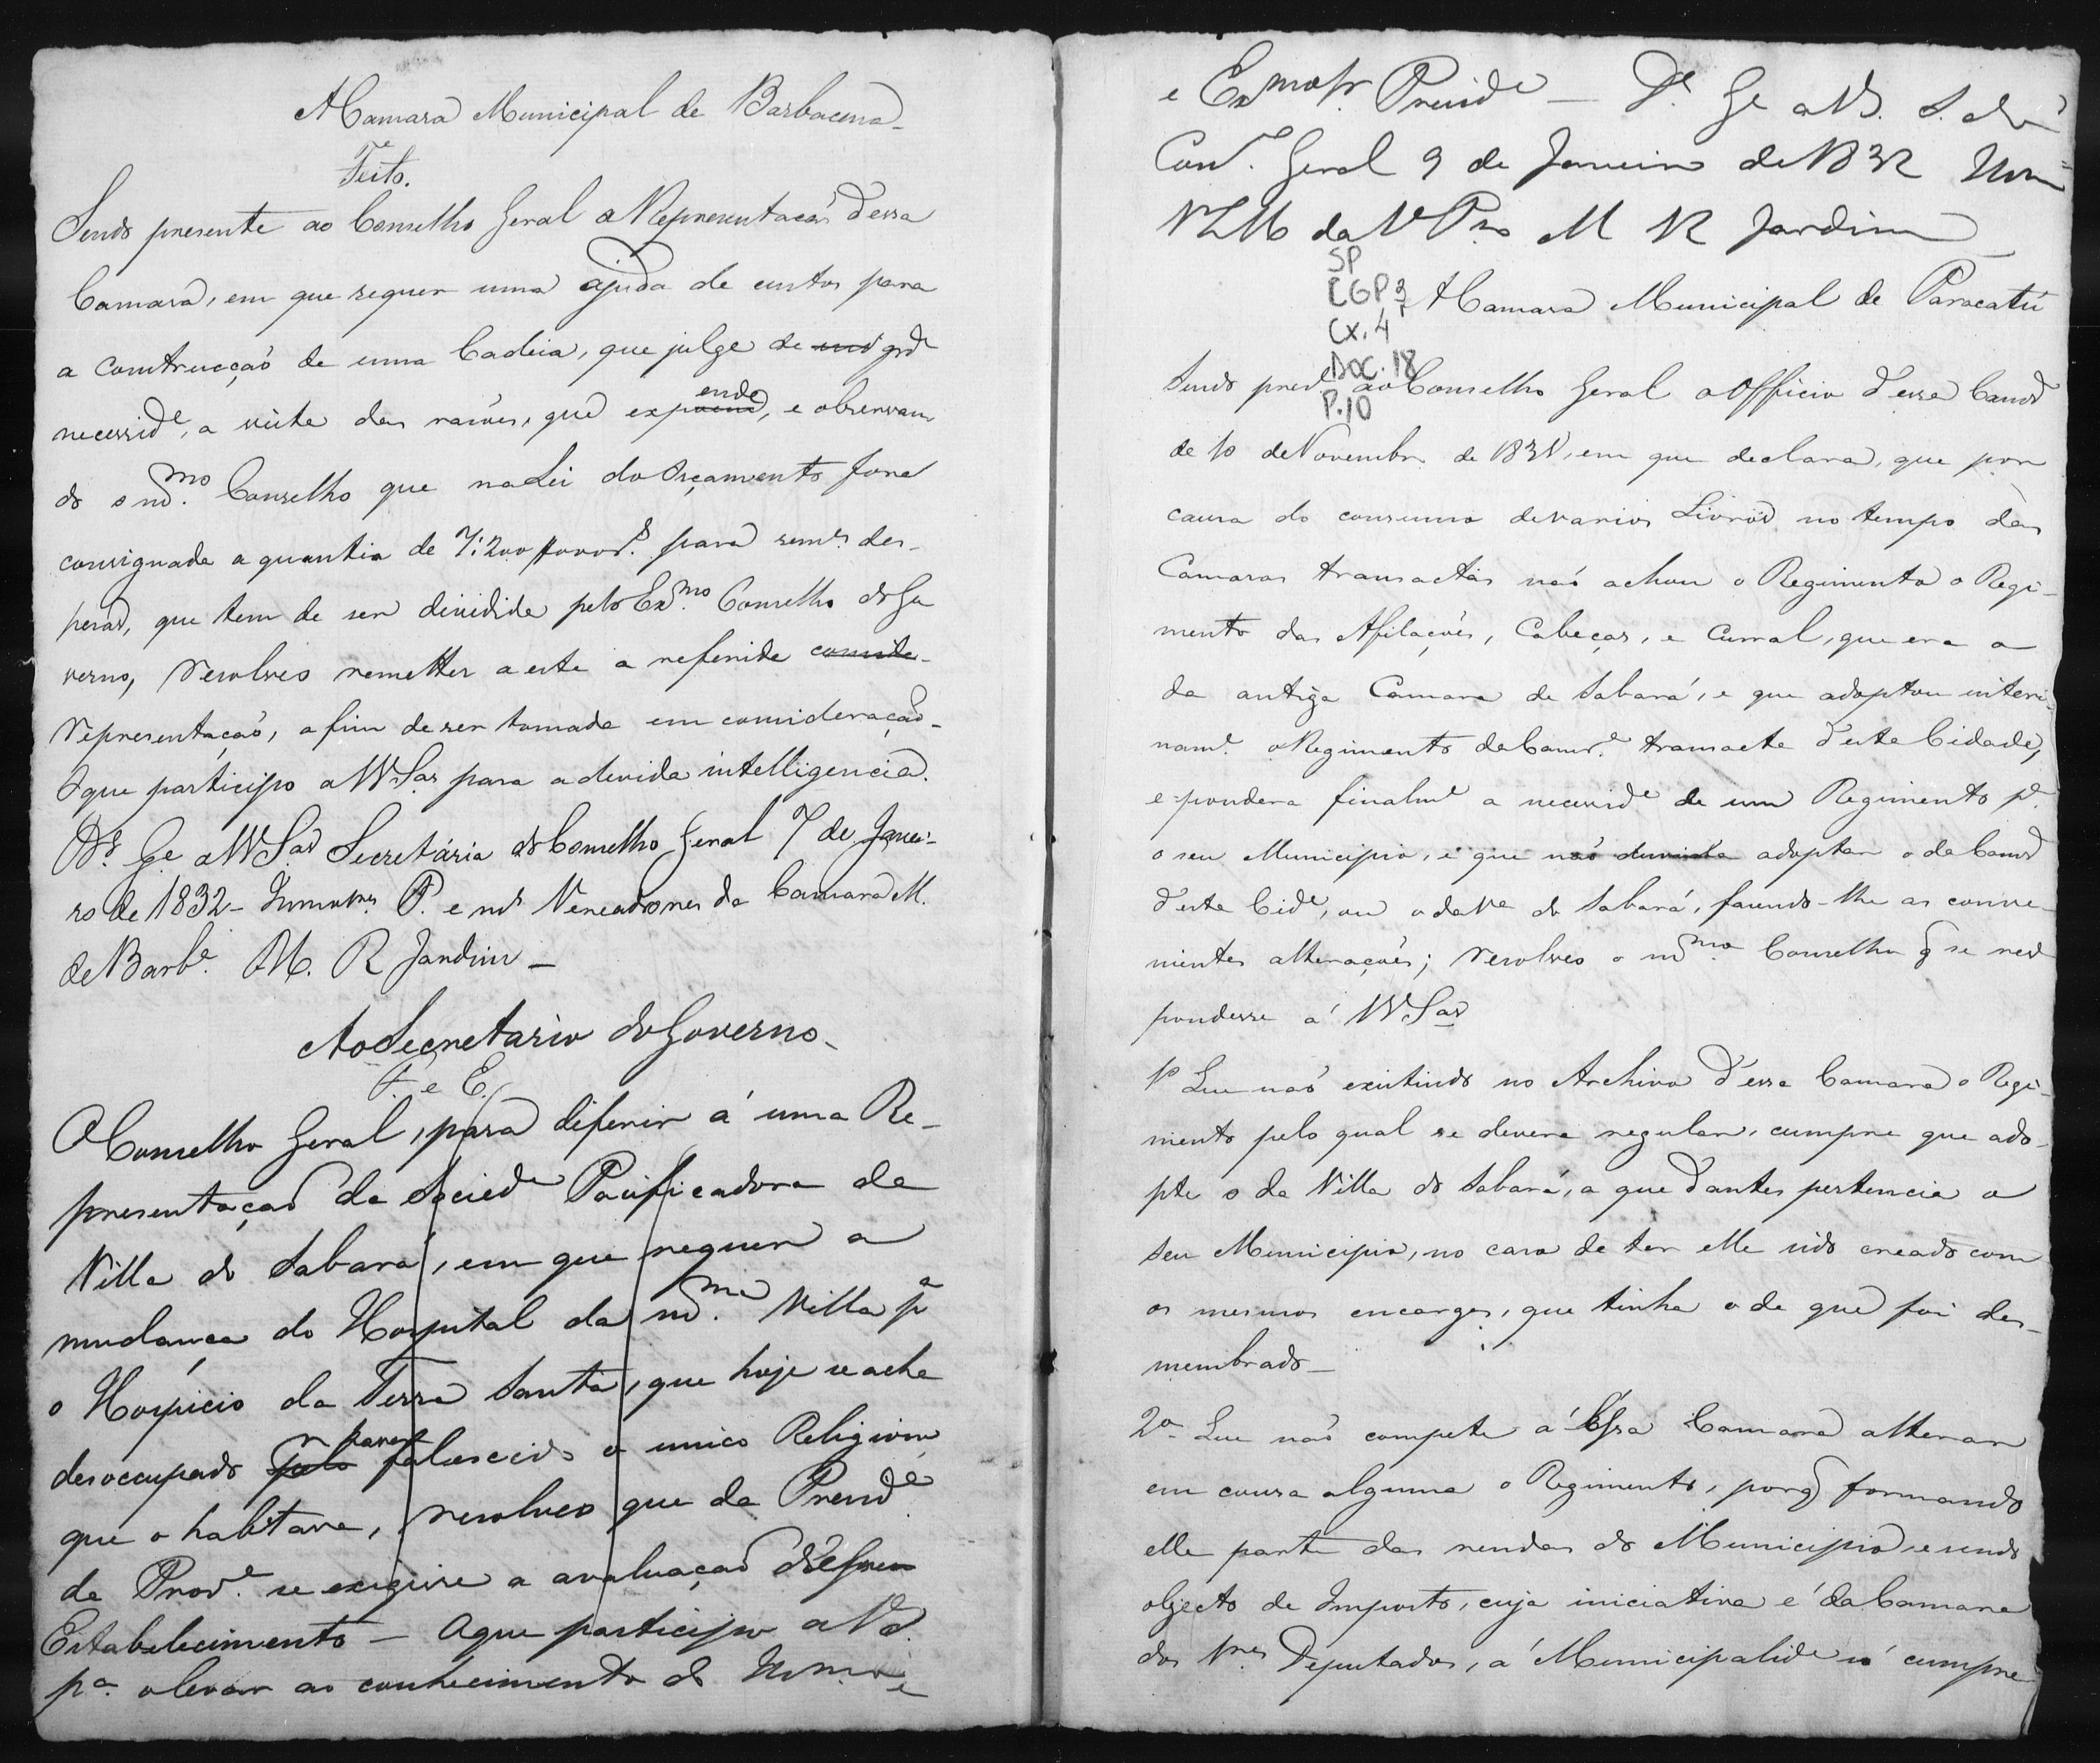 A Camara Municipal de Barbacena
Feito.
Sendo presente ao Conselho Geral a Representacaõ d'essa
Camara, em que requer uma ajuda de custos para
a construcçaõ de uma Cadeia, que julga de grde
necesside, a vista das razões, que expoem ende, e observan
do o mdmo. Conselho que na Lei do Orçamento fora
consignada a quantia de 7:200 para semes des-
pesas, que tem de ser dividida pelo Exmo. Conselho do Go
verno, resolveo remetter a este a referida
representaçaõ, a fim de ser tomada em consideraçaõ-
O que participo a VV Sas para a devida intelligencia.
Ds. Ge a VV Sas Secretária do Conselho Geral 7 de Janei-
ro de 1832 - P. e mds Vereadores da Camara M.
de Barbe. M. R Jardim -
Ao Secretario do Governo-
F. e E.
O Conselho Geral, para diferir á uma Re-
presentaçaõ da Sociede Pacificadora da
Villa do Sabará, em que requer a
mudança do Hospital da mdma. Villa pa
o Hospicio da Terra Santa, que hoje se acha
desoccupado pelo falescido o unico Religioso
que o habitava, resolveo que da Preside
da Prove. se exigisse a avaluaçaõ d'esse
Estabelecimento - O que participo a VS.
pa. o levar ao conhecimento do Illmo e
e Exmo Sr. Preside - Ds. Ge a VS. S. do
Cons. Geral 9 de Janeiro de 1832
da M R Jardim
SP
CGP 3/1
CX. 4
DOC. 18
P. 10
A Camara Municipal de Paracatú
Sendo prese ao Conselho Geral o Officio d'essa Camara
de 10 de Novembro de 1831, em que declara, que por
causa do consumo de varios Livros no tempo das
Camaras transactas naõ achou o Regimento o Regi-
mento das Afilações, Cabeças, e Curral, que era o
da antiga Camara de Sabará, e que adoptou interi-
name. o Regimento da Camra. transacta d'esta Cidade,
e pondera finalme a necesside de um Regimento pa.
o seu Municipio, e que naõ duvida adoptar o da Camra
d'esta Cide, ou o da Va do Sabará, fasendo-lhe as conve-
nientes alterações; resolveo o mdmo. Conselho q se res
pondesse a' VV Sas
1º Que naõ existindo no Archivo d'essa Camara o Regi-
mento pelo qual se devera regular, cumpre que ado-
pte o da Villa do Sabará, a que d'antes pertencia o
seu Municipio, no caso de ter elle sido creado com
os mesmos encargos, que tinha o de que foi des-
membrado-
2º Que naõ compete á Essa Camara alterar
em cousa alguma o Regimento, porq formando
elle parte das rendas do Municipio e sendo
objecto de Imposto, cuja iniciativa é da Camara
dos Srs Deputados, á Municipalide só cumpre